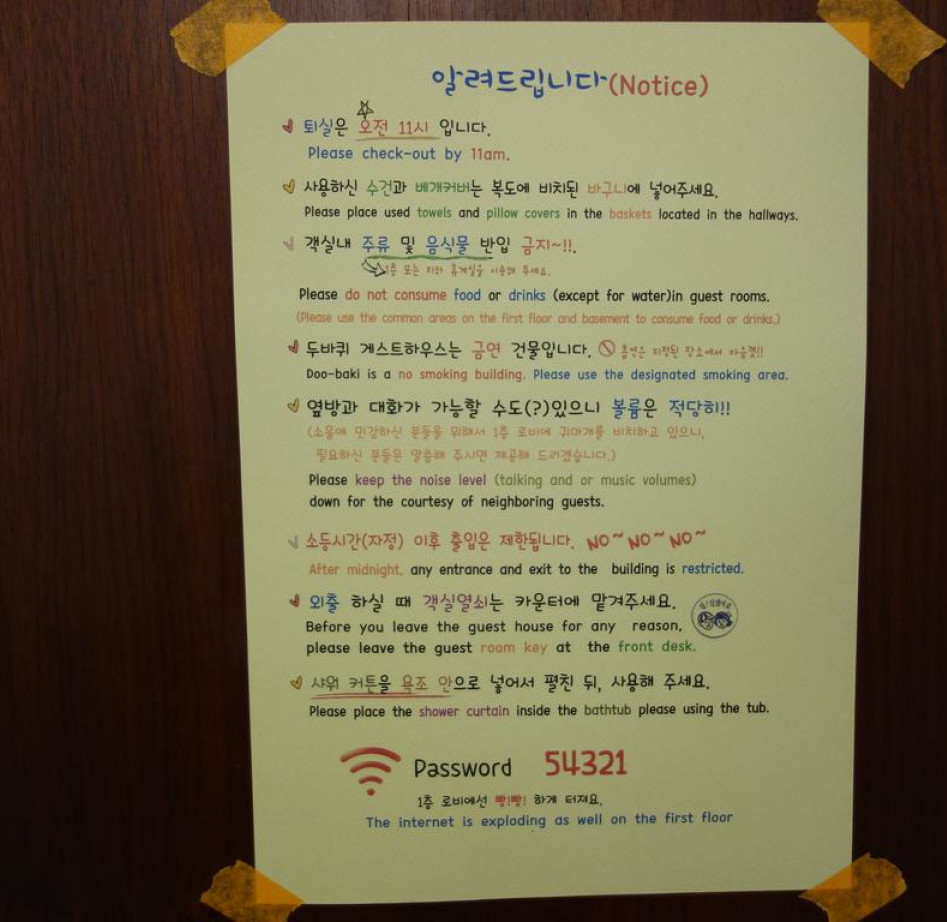 알려드립니다(Notice)
퇴실은 오전 11시 입니다.
Please check-out by 11am.
사용하신 수건과 베개커버는 복도에 비치된 바구니에 넣어주세요.
Please place used towels and pillow covers in the baskets located in the hallways.
객실내 주류 및 음식물 반입 금지~!!.
1층 또는 지하 휴게실을 이용해 주세요.
Please do not consume food or drinks (except for water)in guest rooms.
(Please use the common areas on the first floor and basement to consume food or drinks.)
두바퀴 게스트하우스는 금연 건물입니다. 흡연은 지정된 장소에서 하슈렛!!
Doo-baki is a no smoking building. Please use the designated smoking area.
옆방과 대화가 가능할 수도(?)있으니 볼륨은 적당히!!
(소음에 민감하신 분들을 위해서 1층 로비에 귀마개를 비치하고 있으니,
필요하신 분들은 말씀해 주시면 제공해 드리겠습니다.)
Please keep the noise level (talking and or music volumes)
down for the courtesy of neighboring guests.
소등시간(자정) 이후 출입은 제한됩니다. NO~NO~NO~
After midnight, any entrance and exit to the building is restricted.
외출 하실 때 객실열쇠는 카운터에 맡겨주세요.
Before you leave the guest house for any reason,
please leave the guest room key at the front desk.
샤워 커튼을 욕조 안으로 넣어서 펼친 뒤, 사용해 주세요.
Please place the shower curtain inside the bathtub please using the tub.
Password 54321
1층 로비에선 빵!빵! 하게 터져요.
The internet is exploding as well on the first floor